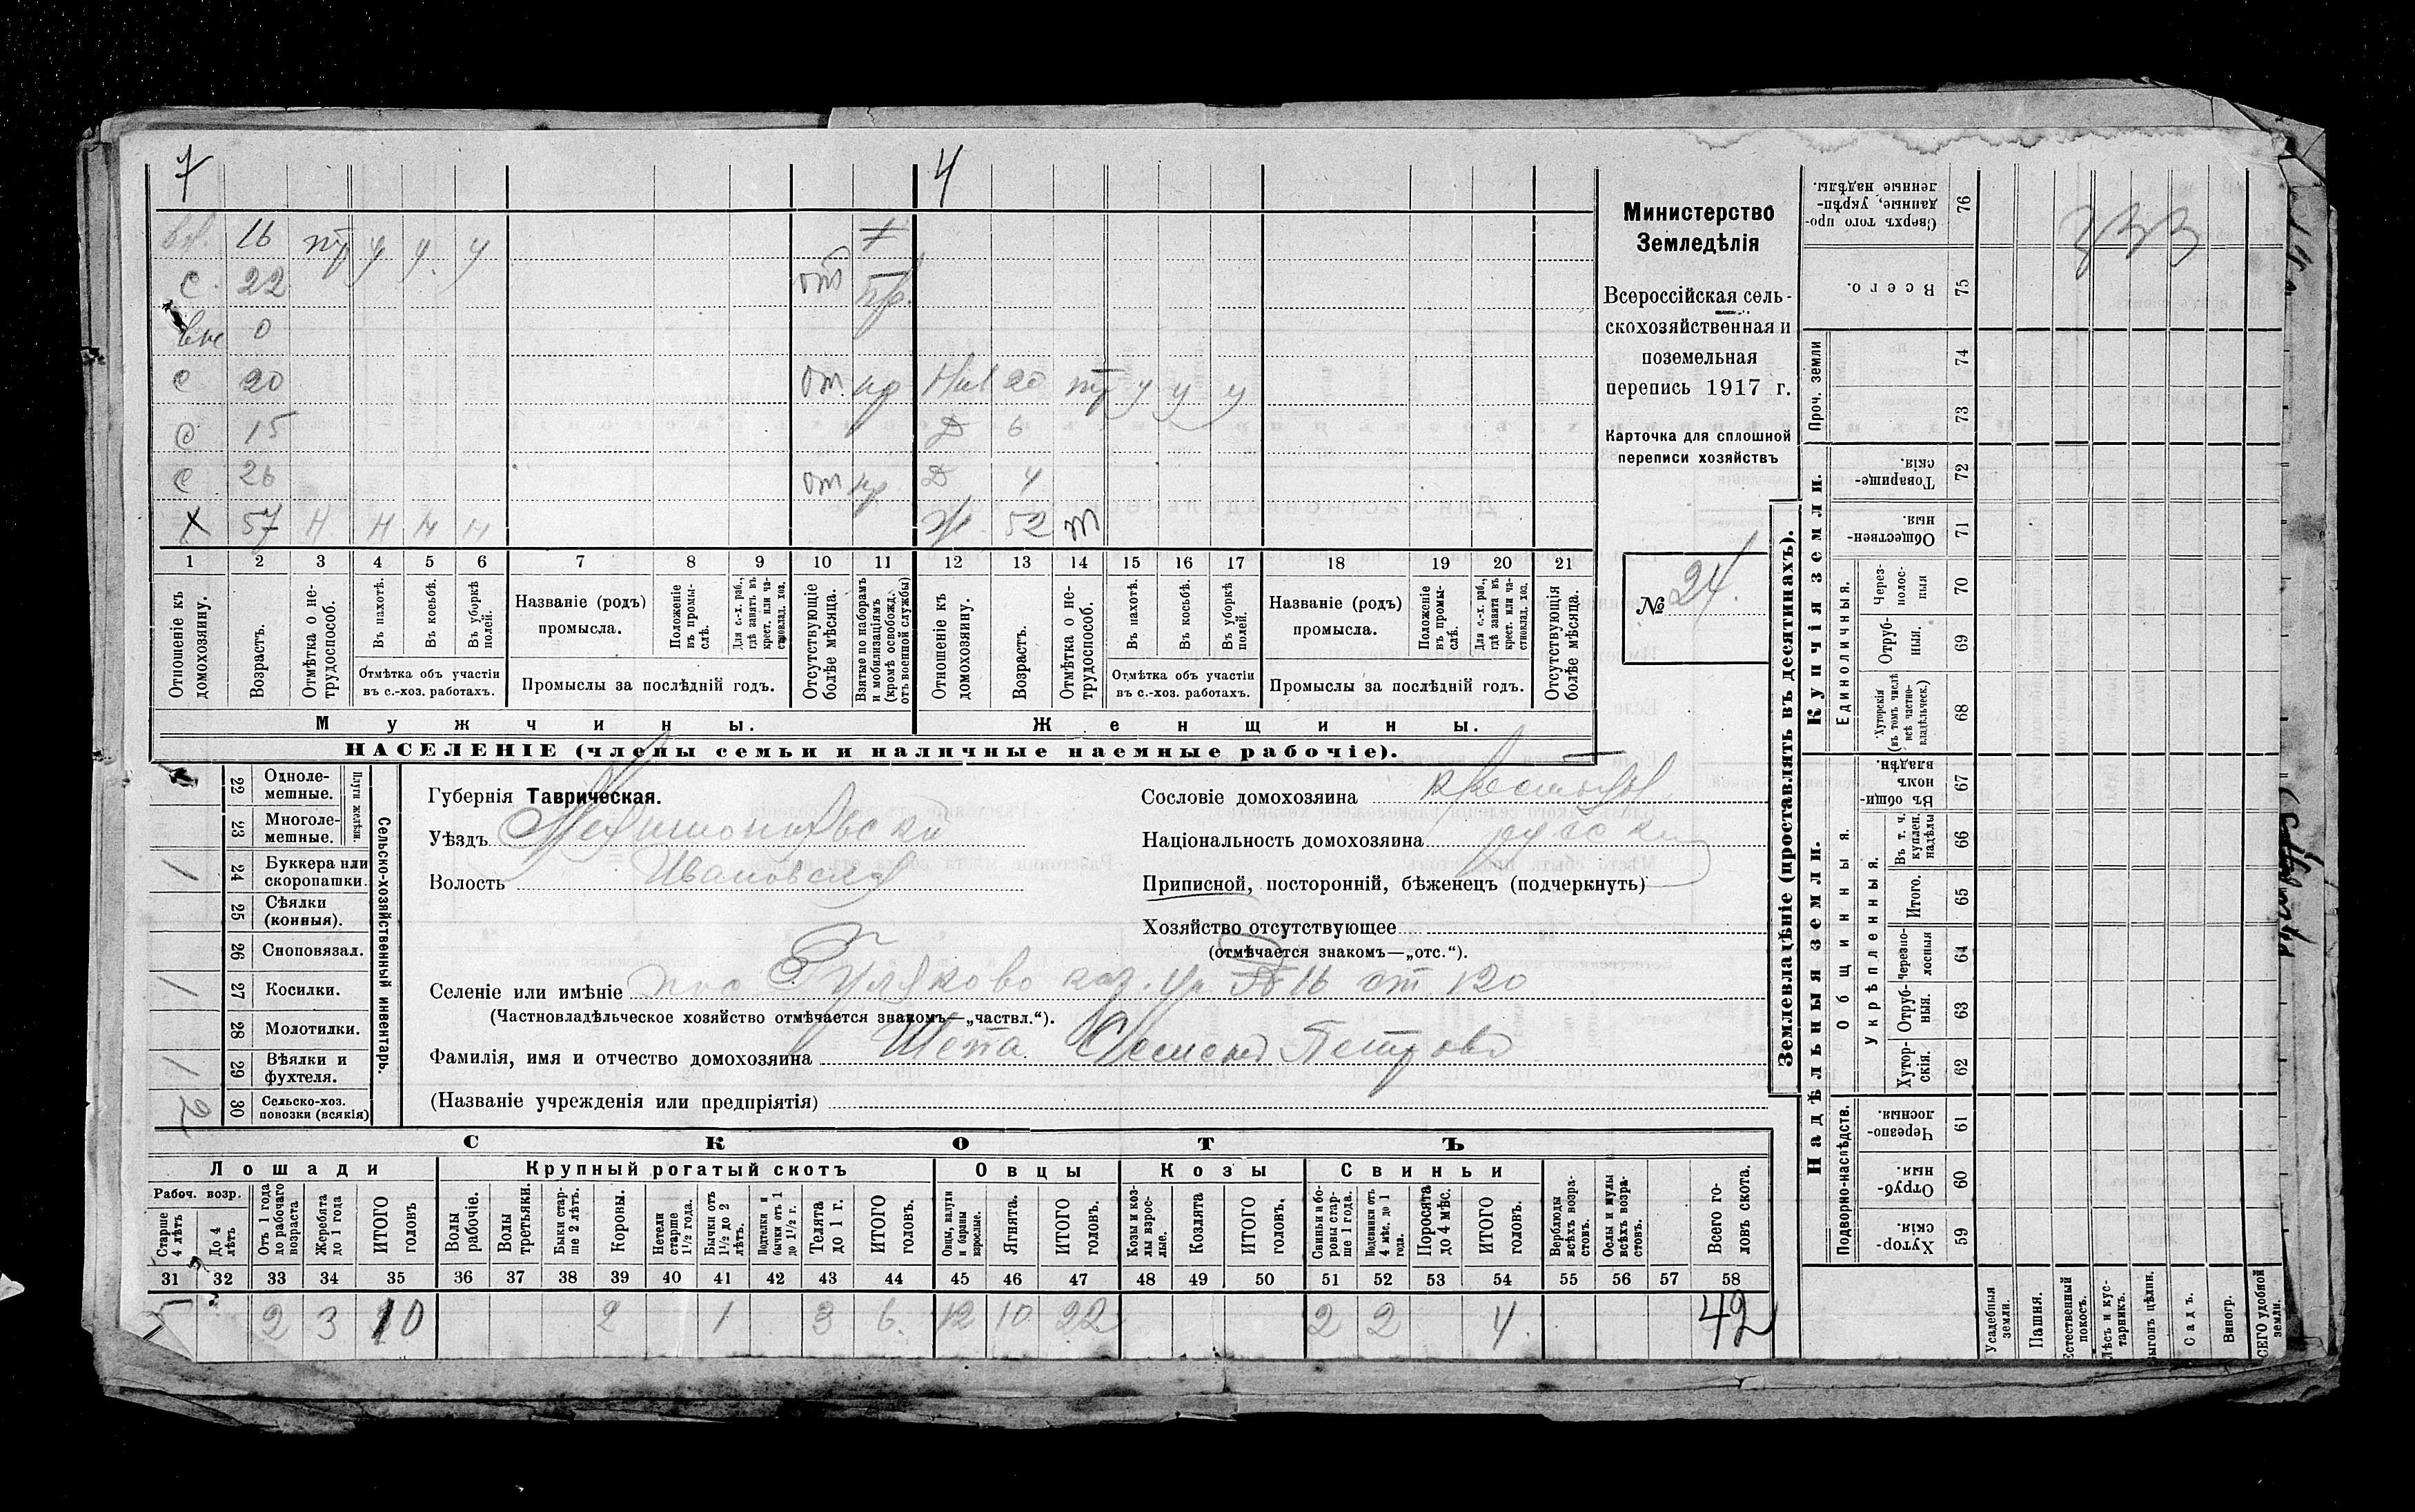 7
4
вн. 16 тр у у. у
с. 22 от пр.
вн 0
с 20 от. пр Нал 20 тр у у у
с 15 Д 6
с 26 от пр Д 4
Х 57 Н Н Н Н Ж. 52 т
1 2 3 4 5 6 7 8 9 10 11 12 13 14 15 16 17 18 19 20 21
Отношеніе къ домохозяину.
Возрастъ.
Отмѣтка о нетрудоспособ.
Въ пахотѣ.
Въ косьбѣ.
Въ уборкѣ полей.
Отмѣтка объ участіи
въ с.-хоз. работахъ.
Названіе (родъ)
промысла.
Положеніе въ промыслѣ.
Для с.-х. раб., гдѣ занятъ въ крест. или частновлад. хоз.
Промыслы за послѣдній годъ.
Отсутствующіе болѣе мѣсяца.
Взятые по наборамъ и мобилизаціямъ (кромѣ освобожд. отъ военной службы)
Отношеніе къ домохозяину.
Возрастъ.
Отмѣтка о нетрудоспособ.
Въ пахотѣ.
Въ косьбѣ.
Въ уборкѣ полей.
Отмѣтка объ участіи
въ с.-хоз. работахъ.
Названіе (родъ)
промысла.
Положеніе въ промыслѣ.
Для с.-х. раб., гдѣ занята въ крест. или частновлад. хоз.
Промыслы за послѣдній годъ.
Отсутствующія болѣе мѣсяца.
Мужчины.
Женщины.
НАСЕЛЕНІЕ (члены семьи и наличные наемные рабочіе).
Министерство
Земледѣлія
Всероссійская сель-
скохозяйственная и
поземельная
перепись 1917 г.
Карточка для сплошной
переписи хозяйствъ
№ 24.
22 Одноле-
мешные.
23 Многоле-
мешные.
Плуги желѣзн.
1 24 Буккера или
скоропашки.
25 Сѣялки
(конныя).
26 Сноповязал.
1 27 Косилки.
28 Молотилки.
1 29 Вѣялки и
фухтеля.
2 30 Сельско-хоз.
повозки (всякія)
Сельско-хозяйственный инвентарь.
Губернія Таврическая.
Уѣздъ Мелитопольски
Волость Ивановская
Сословіе домохозяина крестьян
Національность домохозяина русски
Приписной, посторонній, бѣженецъ (подчеркнуть)
Хозяйство отсутствующее
(отмѣчается знакомъ—„отс.“).
Селеніе или имѣніе 16 ст. 120
(Частновладѣльческое хозяйство отмѣчается знакомъ—„частвл.“).
Фамилія, имя и отчество домохозяина Шепа Семенъ Петровъ
(Названіе учрежденія или предпріятія)
СКОТЪ
Лошади
Крупный рогатый скотъ
Овцы
Козы
Свиньи
Рабоч. возр.
Старше 4 лѣтъ
До 4 лѣтъ
Отъ 1 года до рабочаго возраста
Жеребята до 1 года
ИТОГО головъ
Волы рабочіе.
Волы третьяки.
Быки старше 2 лѣтъ.
Коровы.
Нетели старше 1½ года.
Бычки отъ 1½ до 2 лѣтъ.
Подтелки и бычки отъ 1 до 1½ г.
Телята до 1 г.
ИТОГО головъ.
Овцы, валухи и бараны взрослые.
Ягнята.
ИТОГО головъ.
Козы и козлы взрослые.
Козлята
ИТОГО головъ.
Свиньи и боровы старше 1 года.
Подсвинки отъ 4 мѣс. до 1 года.
Поросята до 4 мѣс.
ИТОГО головъ.
Верблюды всѣхъ возрастовъ.
Ослы и мулы всѣхъ возрастовъ.
Всего головъ скота.
31 32 33 34 35 36 37 38 39 40 41 42 43 44 45 46 47 48 49 50 51 52 53 54 55 56 57 58
5 2 3 10 2 1 3 6. 12 10 22 2 2 4. 42
Землевладѣніе (проставлять въ десятинахъ).
Купчія земли.
Надѣльныя земли.
Сверхъ того проданные, укрѣпленные надѣлы. 76
Всего. 75
Проч. земли
74
73
Товарищескія. 72
Общественныя. 71
Единоличныя.
Черезполосныя 70
Отрубныя. 69
Хуторскія (въ томъ числѣ всѣ частновладѣльческ.) 68
Общинныя.
Въ общинномъ владѣн. 67
Укрѣпленныя.
Въ т. ч. куплен. надѣлы 66
Итого. 65
Черезполосныя 64
Отрубныя. 63
Хуторскія. 62
Подворно-наслѣдств.
Черезполосныя. 61
Отрубныя. 60
Хуторскія. 59
Усадебныя земли.
Пашня.
Естественный покосъ.
Лѣсъ и кустарникъ.
Выгонъ цѣлин.
Садъ.
Виногр.
ВСЕГО удобной земли.